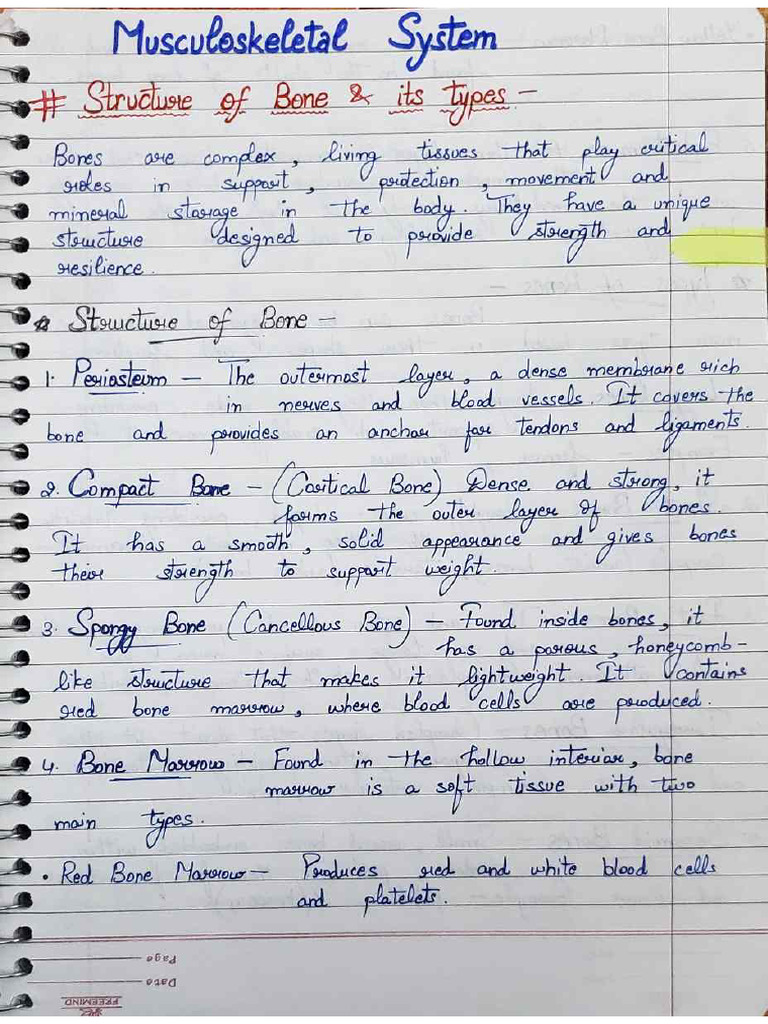 Musculoskeletal System
# Structure of Bone & its types -
Bones are complex, living tissues that play critical
roles in support, protection, movement and
mineral storage in the body. They have a unique
structure designed to provide strength and
resilience.
* Structure of Bone -
1. Periosteum - The outermost layer, a dense membrane rich
in nerves and blood vessels. It covers the
bone and provides an anchor for tendons and ligaments.
2. Compact Bone - (Cortical Bone) Dense and strong, it
forms the outer layer of bones.
It has a smooth, solid appearance and gives bones
their strength to support weight.
3. Spongy Bone (Cancellous Bone) - Found inside bones, it
has a porous, honeycomb-
like structure that makes it lightweight. It contains
red bone marrow, where blood cells are produced.
4. Bone Marrow - Found in the hollow interior, bone
marrow is a soft tissue with two
main types.
• Red Bone Marrow - Produces red and white blood cells
and platelets.
Page
Date
FREEMIND